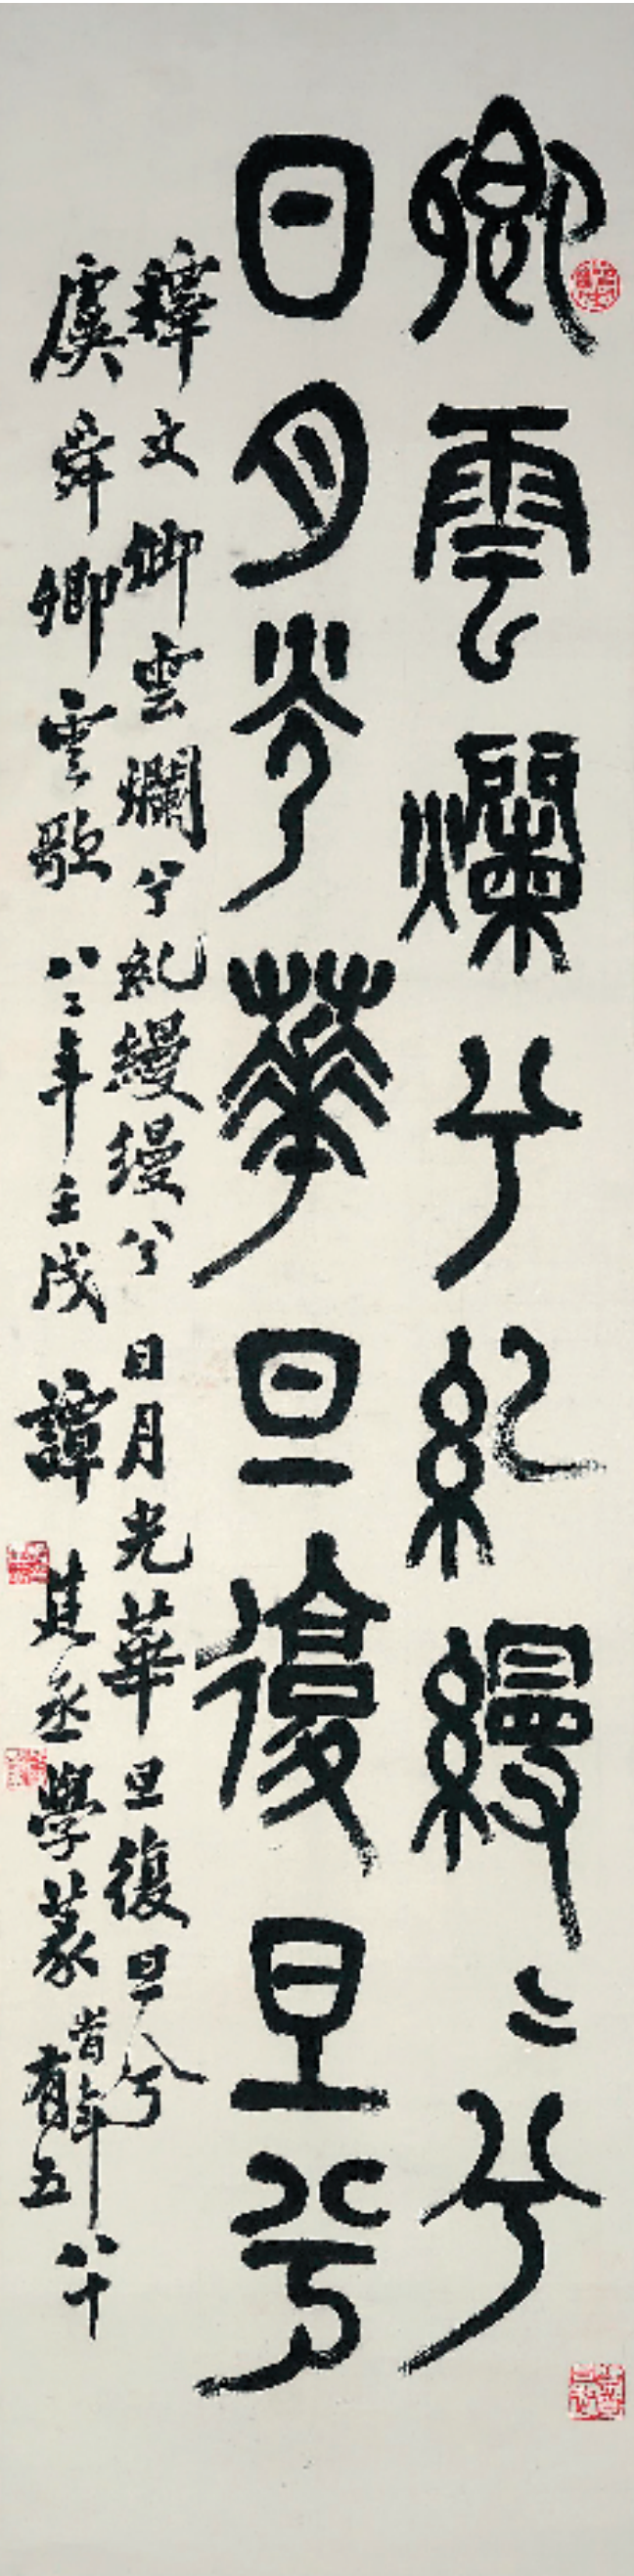 卿雲爛兮糺縵〻兮
日月光華旦復旦兮
釋文卿雲爛兮糺縵縵兮日月光華旦復旦兮
虞舜卿雲歌八二年壬戌譚建丞學篆
昔年八十
有五